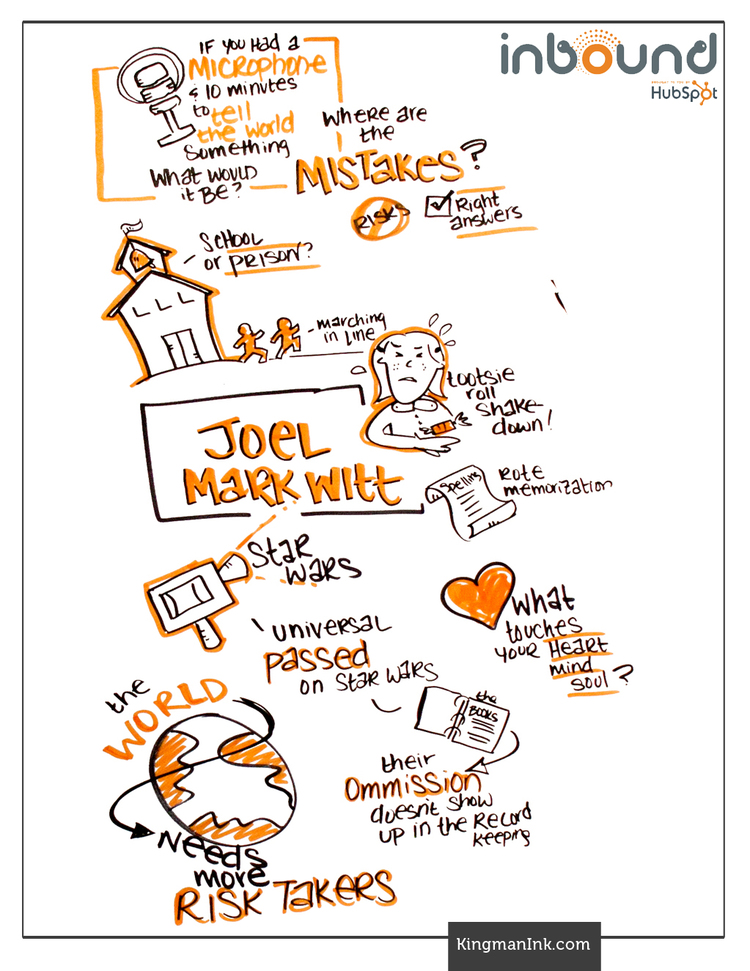 inbound
BROUGHT TO YOU BY
HubSpot
IF YOU HAD A
MICROPHONE
& 10 minutes
to tell
the world
something
What would
it be?
Where are
the
MISTAKES?
RISKS
Right
answers
SCHOOL
or PRISON?
marching
in line
tootsie
roll
shake-
down!
JOEL
MARK WITT
Spelling
ROTE
memorization
STAR
WARS
UNIVERSAL
passed
on STAR WARS
What
touches
your HEART
mind
soul?
the
BOOKS
their
OMMISSION
doesn't show
up in the Record
keeping
the
WORLD
NEEDS
more
RISK TAKERS
KingmanInk.com